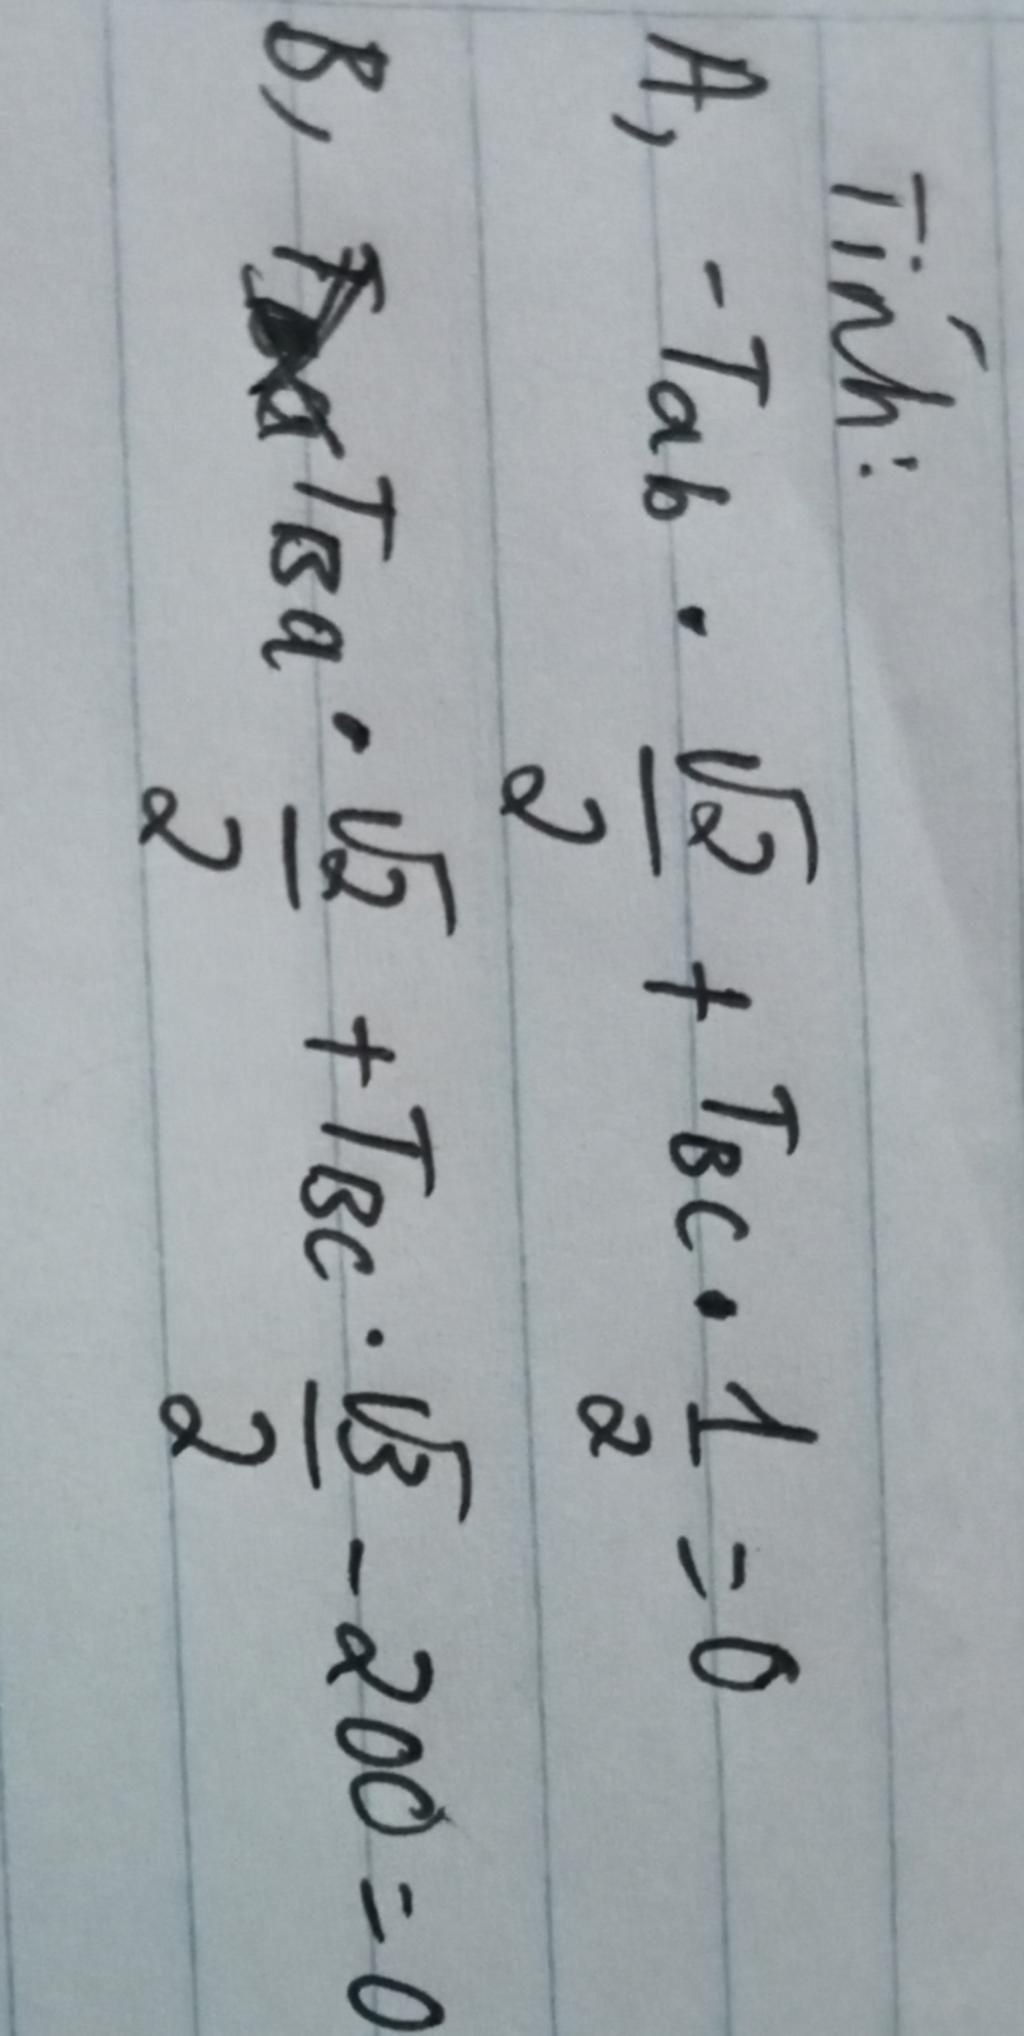 Tính:
A, -Tab . √2/2 + TBC . 1/2 = 0
B, TBa . √2/2 + TBC . √3/2 - 200 = 0